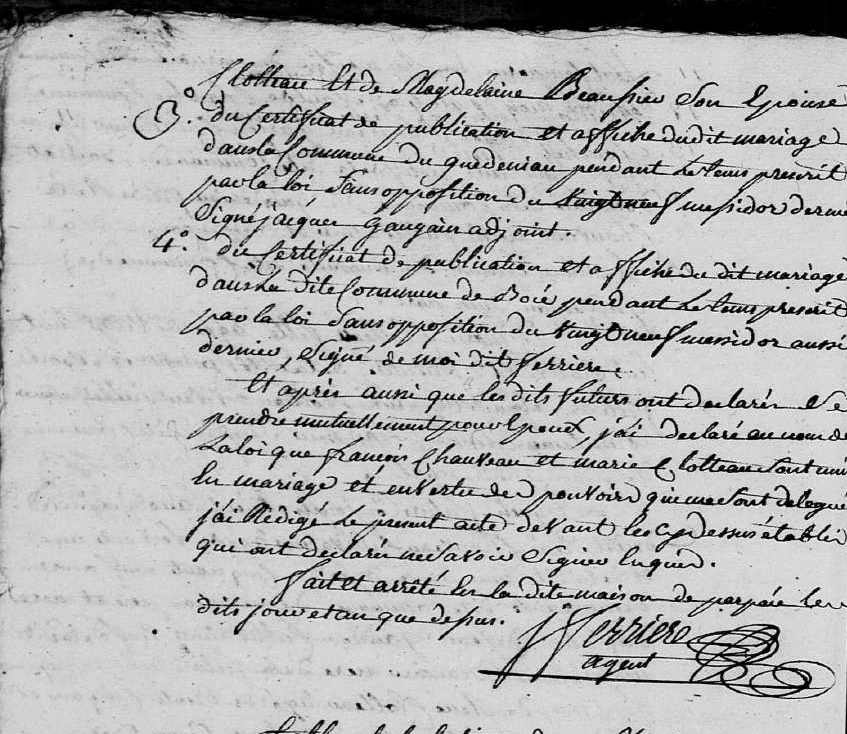 Clotteau Et de Magdelaine Beaussier Son Epouse
3°. du Certificat de publication et affiche dudit mariage
dans la Commune du guedeniau pendant Le tems prescrit
par la loi Sans opposition du vingt neuf messidor dernier
Signé jacques Gaugain adjoint.
4°. du Certificat de publication et affiche du dit mariage
dans La dite Commune de Bocé pendant Le tems prescrit
par la loi Sans opposition du vingt neuf messidor aussi
dernier, Signé de moi dit ferriere.
Et après aussi que les dits futurs ont declarés Se
prendre mutuellement pour Epoux, j'ai declaré au nom de
La loi que françois Chauveau et marie Clotteau Sont unis
En mariage et en vertu des pouvoirs qui me Sont delegués
j'ai Rédigé Le present acte devant les cy dessus établis
qui ont declarés ne Savoir Signer Enquis.
fait et arrêté En la dite maison de Les
dits jour et an que depus.
ferriere
agent